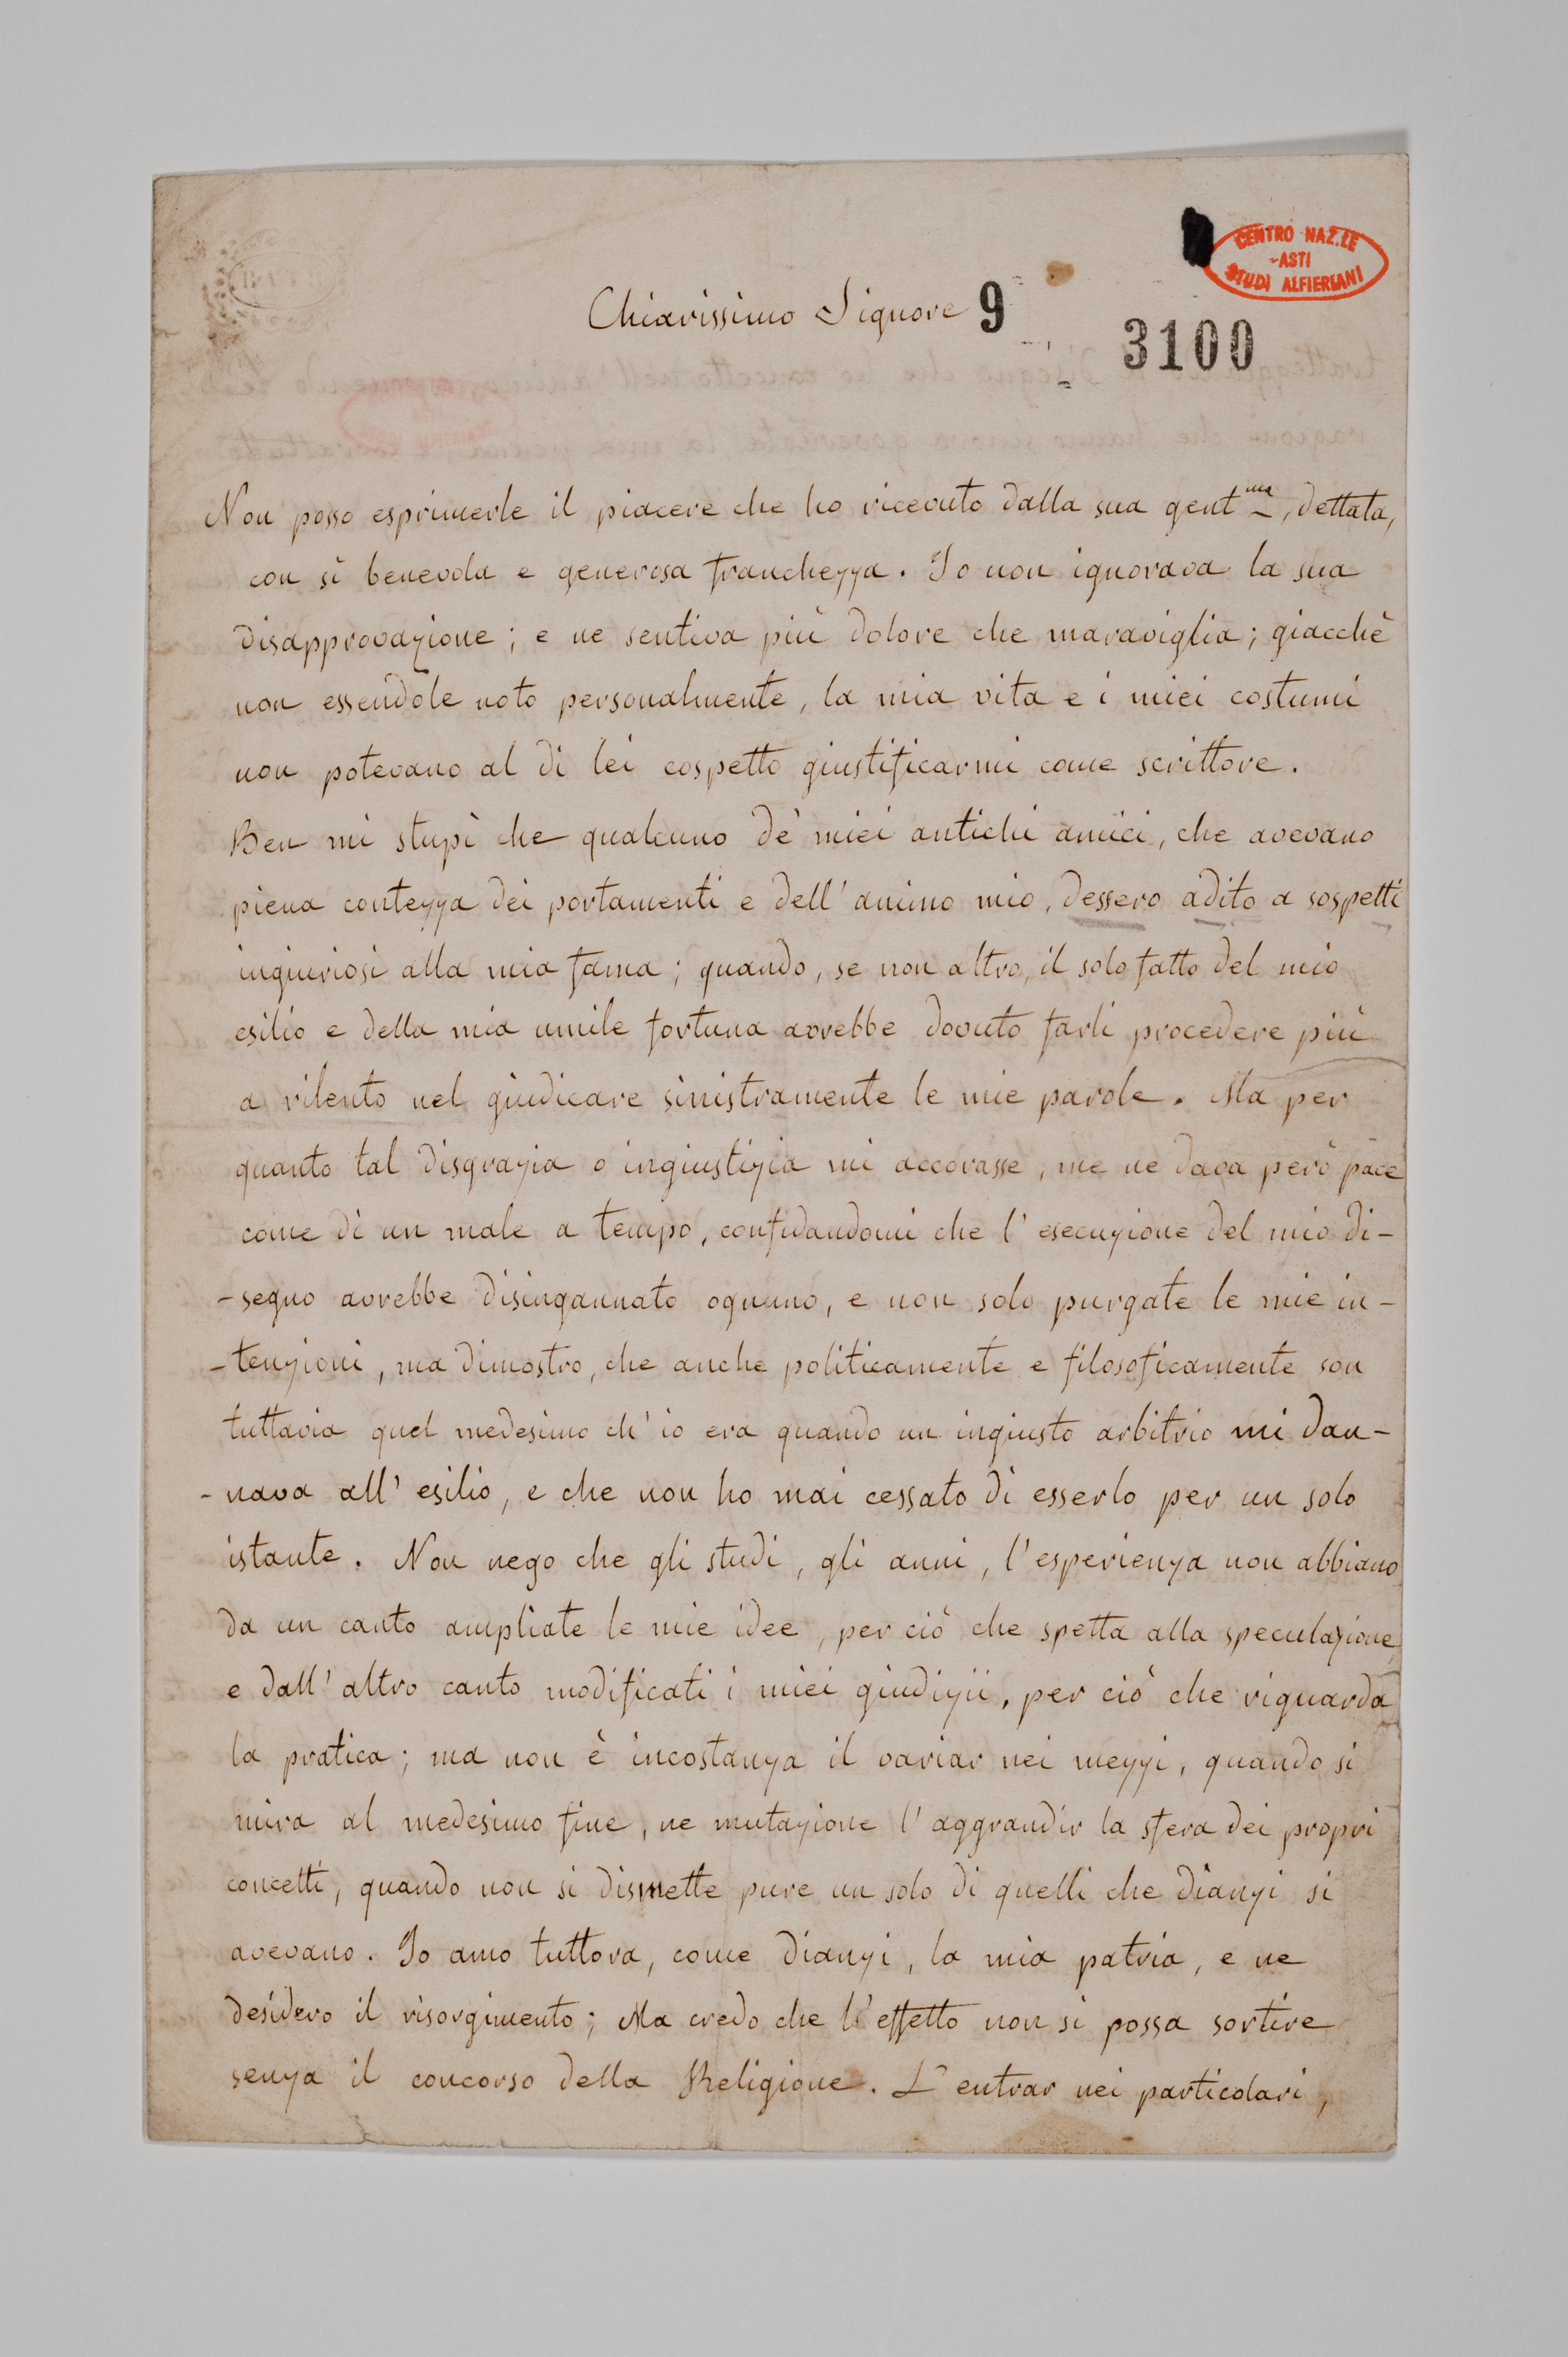 CENTRO NAZ.LE
- ASTI
STUDI ALFIERIANI
BATH
Chiarissimo Signore 9
3100
Non posso esprimerle il piacere che ho ricevuto dalla sua gent.ma, dettata,
con sì benevola e generosa franchezza. Io non ignorava la sua
disapprovazione; e ne sentiva più dolore che maraviglia; giacchè
non essendole noto personalmente, la mia vita e i miei costumi
non potevano al di lei cospetto giustificarmi come scrittore.
Ben mi stupì che qualcuno de' miei antichi amici, che avevano
piena contezza dei portamenti e dell'animo mio, dessero adito a sospetti
ingiuriosi alla mia fama; quando, se non altro, il solo fatto del mio
esilio e della mia umile fortuna avrebbe dovuto farli procedere più
a rilento nel giudicare sinistramente le mie parole. Ma per
quanto tal disgrazia o ingiustizia mi accorasse, me ne dava però pace
come di un male a tempo, confidandomi che l'esecuzione del mio di-
-segno avrebbe disingannato ognuno, e non solo purgate le mie in-
-tenzioni, ma dimostro, che anche politicamente e filosoficamente son
tuttavia quel medesimo ch'io era quando un ingiusto arbitrio mi dan-
-nava all'esilio, e che non ho mai cessato di esserlo per un solo
istante. Non nego che gli studi, gli anni, l'esperienza non abbiano
da un canto ampliate le mie idee, per ciò che spetta alla speculazione,
e dall'altro canto modificati i miei giudizii, per ciò che riguarda
la pratica; ma non è incostanza il variar nei mezzi, quando si
mira al medesimo fine, ne mutazione l'aggrandir la sfera dei propri
concetti, quando non si dismette pure un solo di quelli che dianzi si
avevano. Io amo tuttora, come dianzi, la mia patria, e ne
desidero il risorgimento; Ma credo che l'effetto non si possa sortire
senza il concorso della Religione. L'entrar nei particolari,